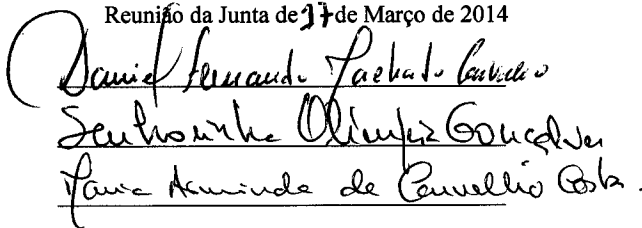 Reunião da Junta de 17 de Março de 2014
Daniel Fernando Machado Carvalho
Senhorinha Olímpia Gonçalves
Maria Arminda de Carvalho Costa.